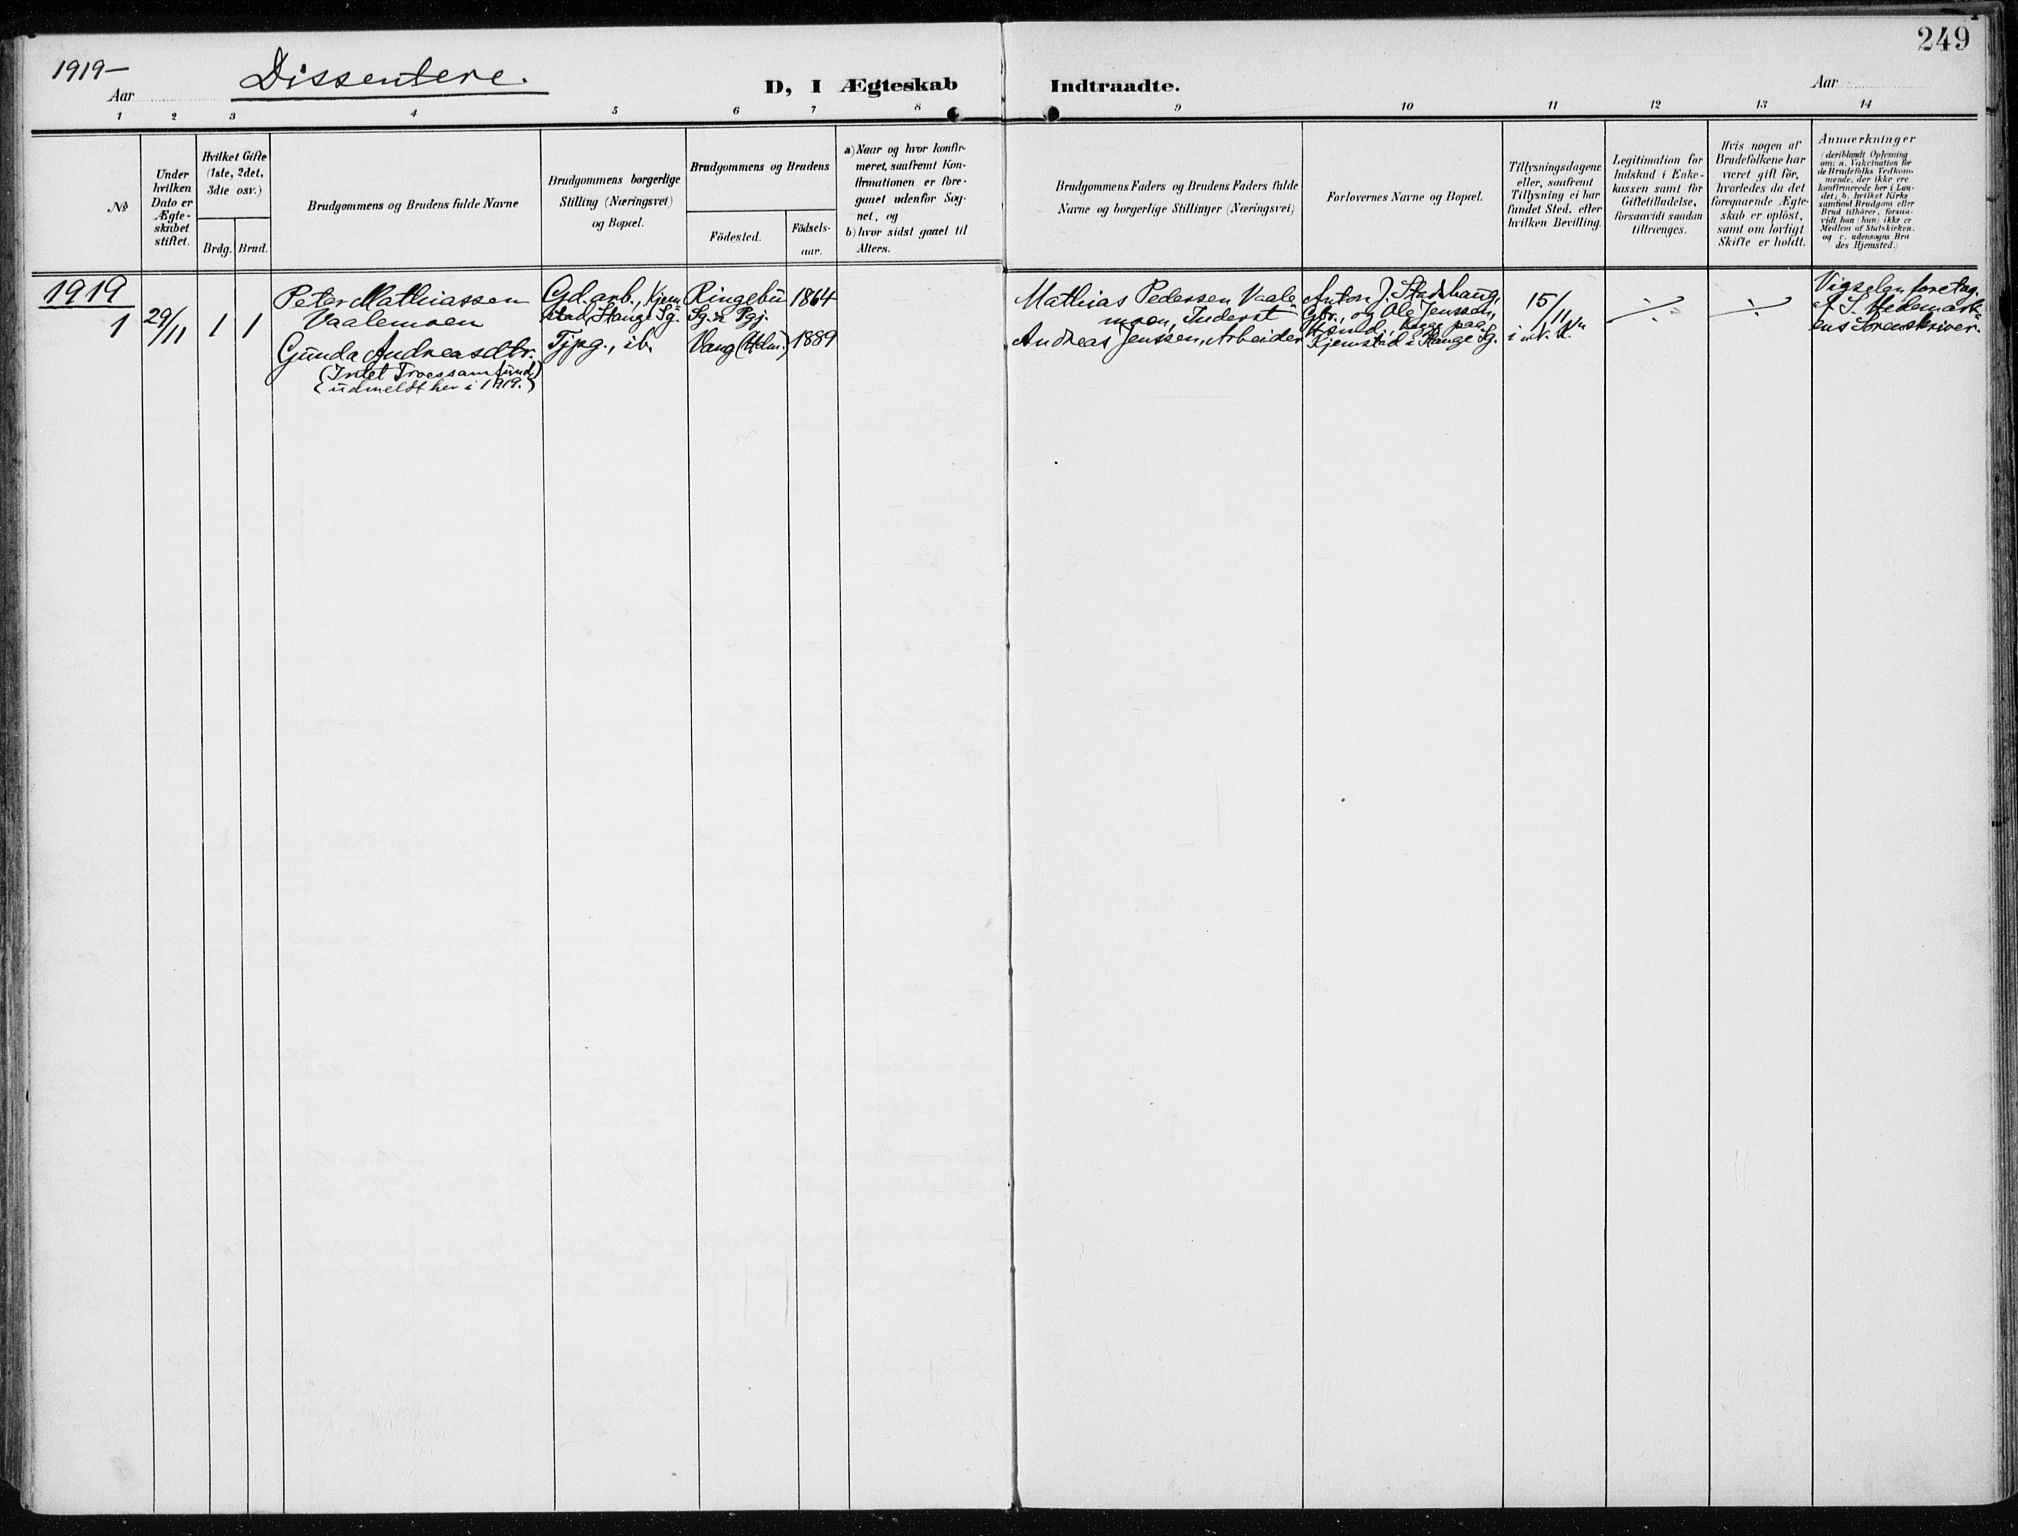 249
1919-
Dissentere.
Aar
D, I Ægteskab Indtraadte.
Aar
1 2 3 4 5 6 7 8 9 10 11 12 13 14
No
Under
hvilken
Dato er
Ægte-
skabet
stiftet.
Hvilket Gifte
(1ste, 2det,
3die osv.)
Brdg. Brud.
Brudgommens og Brudens fulde Navne
Brudgommens borgerlige
Stilling (Næringsvei)
og Bopæl.
Brudgommens og Brudens
Födested.
Födsels-
aar.
a) Naar og hvor konfir-
meret, saafremt Kon-
firmationen er fore-
gaaet udenfor Sog-
net, og
b) hvor sidst gaaet til
Alters.
Brudgommens Faders og Brudens Faders fulde
Navne og borgerlige Stillinger (Næringsvei)
Forlovernes Navne og Bopæl.
Tillysningsdagene
eller, saafremt
Tillysning ei har
fundet Sted, efter
hvilken Bevilling.
Legitimation for
Indskud i Enke-
kassen samt for
Giftetilladelse,
forsaavidt saadan
tiltrænges.
Hvis nogen af
Brudefolkene har
været gift för,
hvorledes da det
foregaaende Ægte-
skab er oplöst,
samt om lovligt
Skifte er holdt.
Anmærkninger
(deriblandt Oplysning
om: a. Vakcination for
de Brudefolks Vedkom-
mende, der ikke ere
konfirmerede her i Lan-
det; b. hvilket Kirke
samfund Brudgom eller
Brud tilhörer, forsaa-
vidt han (hun) ikke er
Medlem af Statskirken.
og c. udensogns Bru
des Hjemsted.)
1919
1
29/11
1 1
Peter Mathiassen
Vaalemoen
Gunda Andreasdtr.
(Intet Troessamfund)
(udmeldt her i 1919.)
Gd. arb., Kjem
stad, Stange Sg.
Tjpg., ib.
Ringebu
Sg. & Pgj.
Vang (Hdm.)
1864
1889
Mathias Pedersen Vaale
moen, Inderst
Andreas Jenssen, Arbeider
Anton J. Stadshaug,
Gbr., og Ole Jenssen,
Hsmd., begge paa
Kjemstad i Stange Sg.
15/11
÷ ÷
Vigselen foretag.
af S. Hedemark-
ens Sorenskriver.